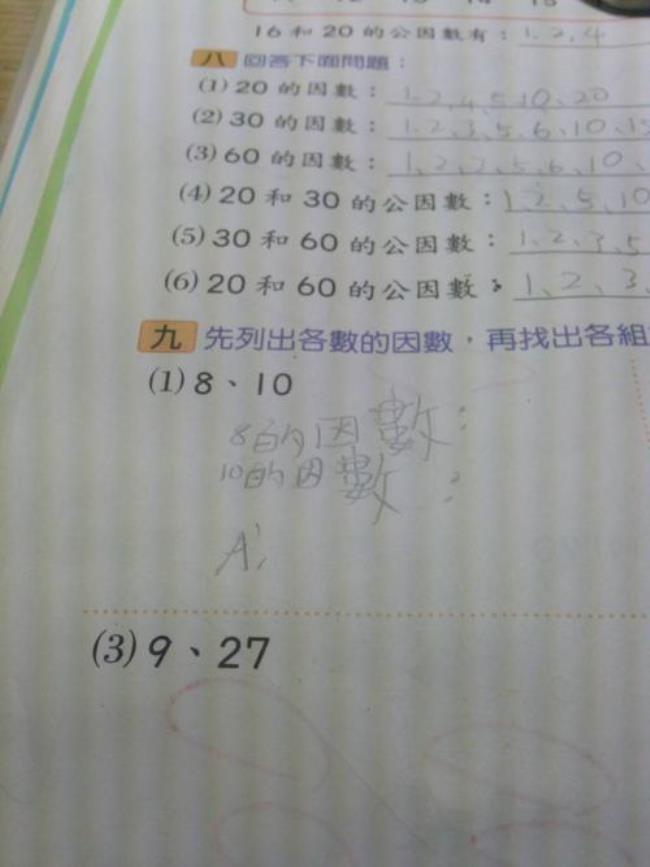 16 和 20 的公因數有：1, 2, 4
八 回答下面問題：
(1) 20 的因數：1、2、4、5、10、20
(2) 30 的因數：1、2、3、5、6、10、15
(3) 60 的因數：1、2、2、5、6、10、
(4) 20 和 30 的公因數：1、2、5、10
(5) 30 和 60 的公因數：1、2、3、5
(6) 20 和 60 的公因數：1、2、3、
九 先列出各數的因數，再找出各組
(1) 8、10
8的因數：
10的因數：
A:
(3) 9、27